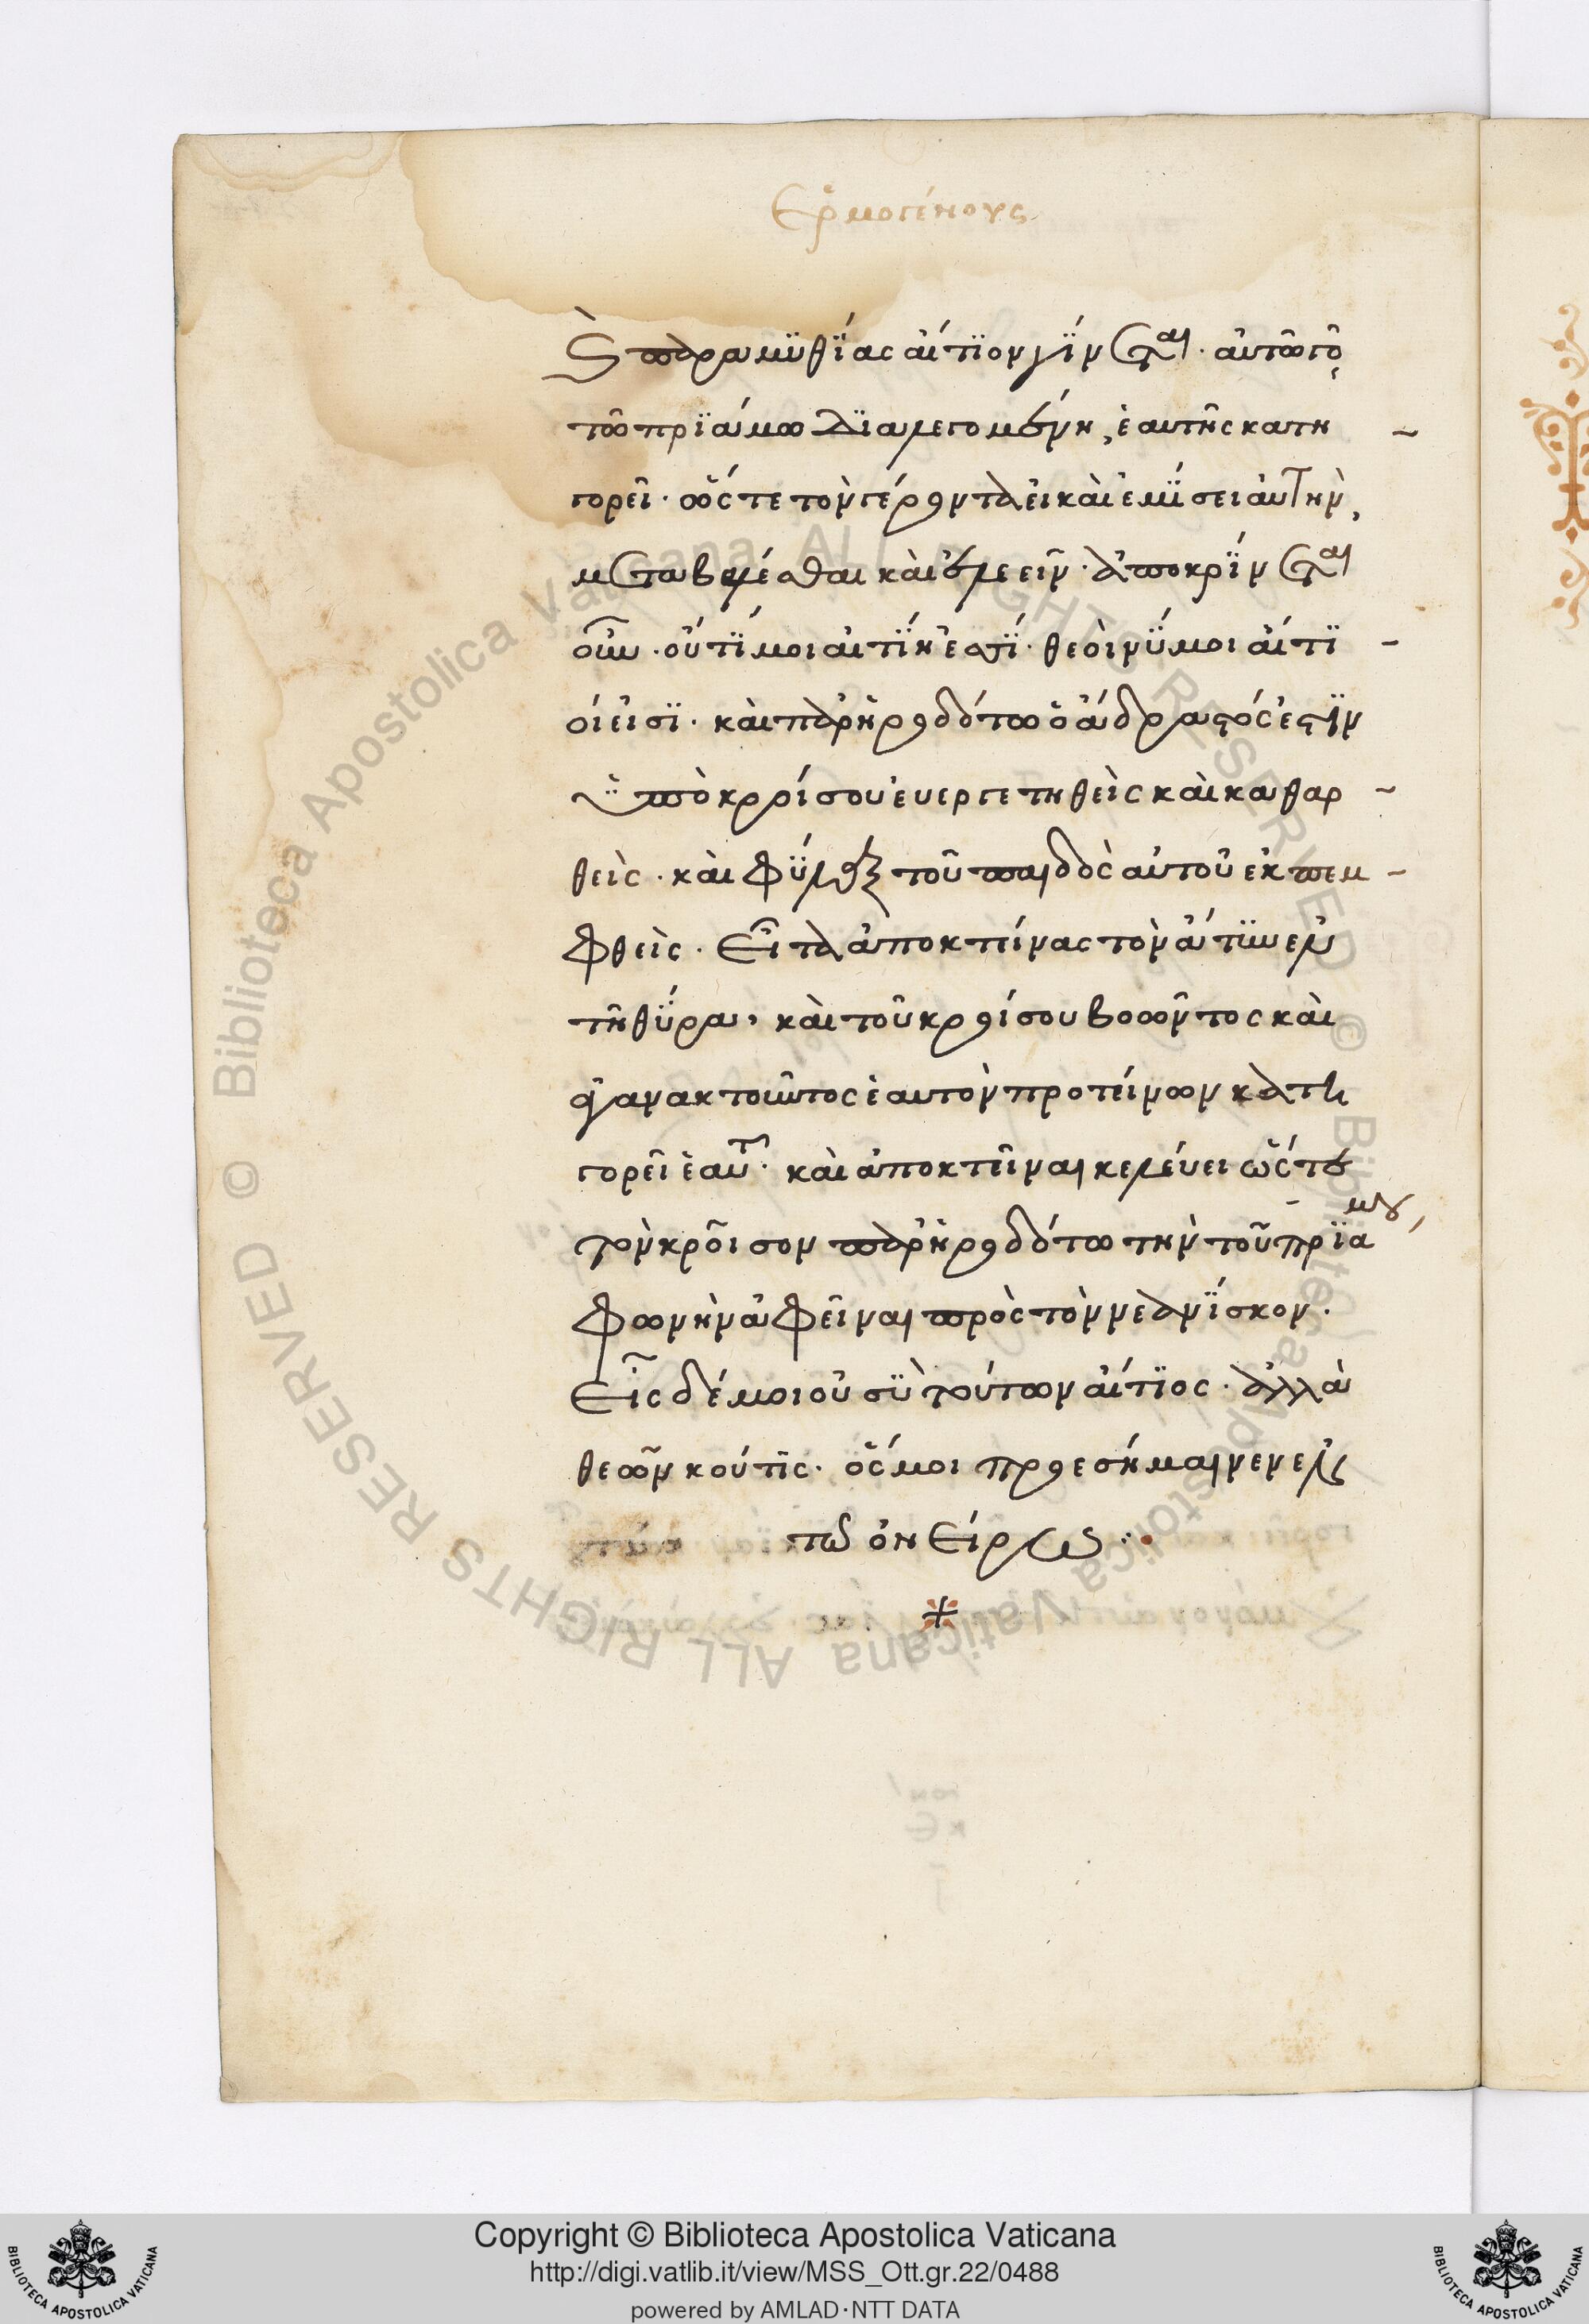 Ἑρμογένους
καὶ παραμυθίας αἴτιον γίνεται. αὐτῶ γὰρ
τῶ πριάμω διαλεγομένη, ἑαυτῆς κατη
γορεῖ. ὥστε τὸν γέροντα εἰ καὶ ἐμίσει αὐτὴν,
μεταβαλέσθαι καὶ ἐλεεῖν. ἀποκρίνεται
οὖν. οὔτί μοι αἰτίη ἐσσί. θεοί νύ μοι αἴτι
οί εἰσι. καὶ παρ' ἡροδότω ὁ ἄδραστός ἐστιν
ὑπὸ κροίσου εὐεργετηθεὶς καὶ καθαρ
θεὶς. καὶ φύλαξ τοῦ παιδὸς αὐτοῦ ἐκπεμ
φθεὶς. εἶτα ἀποκτείνας τὸν ἄτυν ἐν
τῆ θήρα, καὶ τοῦ κροίσου βοῶντος καὶ
ἀγανακτοῦντος ἑαυτὸν προτείνων κατη
γορεῖ ἑαυτοῦ. καὶ ἀποκτεῖναι κελεύει ὥστε
τὸν κροῖσον παρ' ἡροδότω τὴν τοῦ πριάμου
φωνὴν ἀφεῖναι πρὸς τὸν νεανίσκον.
εἶς δέ μοι οὐ σὺ τούτων αἴτιος. ἀλλὰ
θεῶν κού τις. ὅς μοι προεσήμαινεν ἐν
τῶ ὀνείρω
Copyright © Biblioteca Apostolica Vaticana
http://digi.vatlib.it/view/MSS_Ott.gr.22/0488
powered by AMLAD·NTT DATA
BIBLIOTECA APOSTOLICA VATICANA
BIBLIOTECA APOSTOLICA VATICANA
© Biblioteca Apostolica Vaticana ALL RIGHTS RESERVED © Biblioteca Apostolica Vaticana ALL RIGHTS RESERVED